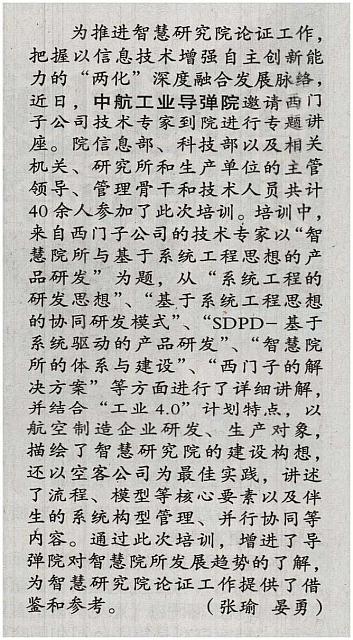 为推进智慧研究院论证工作，
把握以信息技术增强自主创新能
力的“两化”深度融合发展脉络，
近日，中航工业导弹院邀请西门
子公司技术专家到院进行专题讲
座。院信息部、科技部以及相关
机关、研究所和生产单位的主管
领导、管理骨干和技术人员共计
40余人参加了此次培训。培训中，
来自西门子公司的技术专家以“智
慧院所与基于系统工程思想的产
品研发”为题，从“系统工程的
研发思想”、“基于系统工程思想
的协同研发模式”、“SDPD-基于
系统驱动的产品研发”、“智慧院
所的体系与建设”、“西门子的解
决方案”等方面进行了详细讲解，
并结合“工业4.0”计划特点，以
航空制造企业研发、生产对象，
描绘了智慧研究院的建设构想，
还以空客公司为最佳实践，讲述
了流程、模型等核心要素以及伴
生的系统构型管理、并行协同等
内容。通过此次培训，增进了导
弹院对智慧院所发展趋势的了解，
为智慧研究院论证工作提供了借
鉴和参考。（张瑜 晏勇）